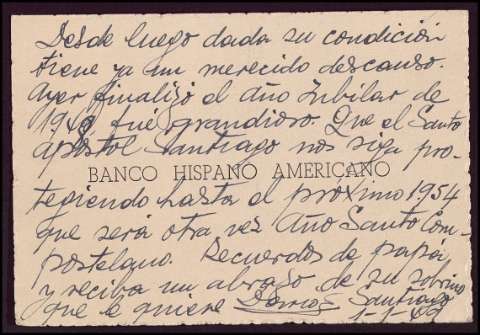 Desde luego dada su condición
tiene ya un merecido descanso.
Ayer finalizó el año Jubilar de
1948 fué grandioso. Que el Santo
apóstol Santiago nos siga pro-
BANCO HISPANO AMERICANO
tegiendo hasta el próximo 1954
que será otra vez Año Santo Com-
postelano. Recuerdos de papá
y reciba un abrazo de su sobrino
que le quiere
Santiago
1-1-49